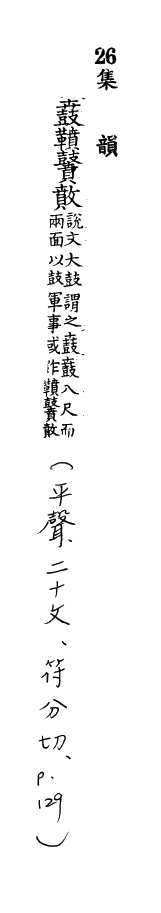 26 集韻
鼖
說文大鼓謂之鼖鼖八尺而
兩面以鼓軍事或作
(平聲、二十文、符分切、p.129)